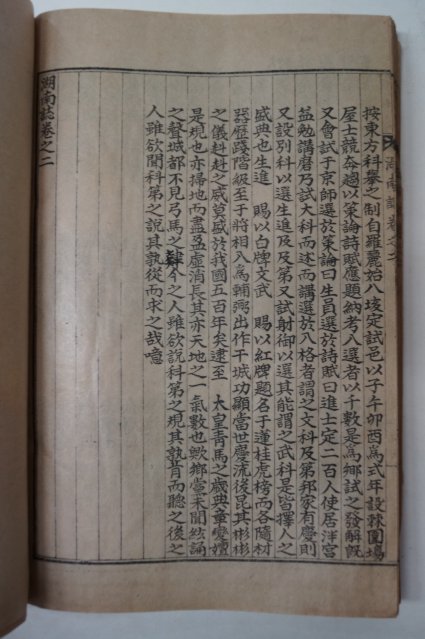 按東方科擧之制自羅麗始八垓定試邑以子午卯酉爲式年設棘圍塲
屋士競奔趨以策論詩賦應題納考八選者以千數是爲鄕試之發解旣
又會試于京師選於策論曰生員選於詩賦曰進士定二百人使居泮宮
益勉講磨乃試大科而述而講選於八格者謂之文科及第邦家有慶則
又設別科以選生進及及第又試射御以選其能謂之武科是皆擇人之
盛典也生進 賜以白牌文武 賜以紅牌題名于蓮桂虎榜而各隨材
器歷踐階級至于將相入爲輔弼出作干城功顯當世慶流後昆其彬彬
之儀赳赳之威莫盛於我國五百年矣逮至 太皇靑馬之歲典章變嬗
是規也亦掃地而盡盈虛消長其亦天地之一氣數也歟鄕黨未聞絃誦
之聲城都不見弓馬之肄今之人雖欲說科第之規其孰肯而聽之後之
人雖欲聞科第之說其孰從而求之哉噫
湖南誌卷之二
湖南誌卷之二